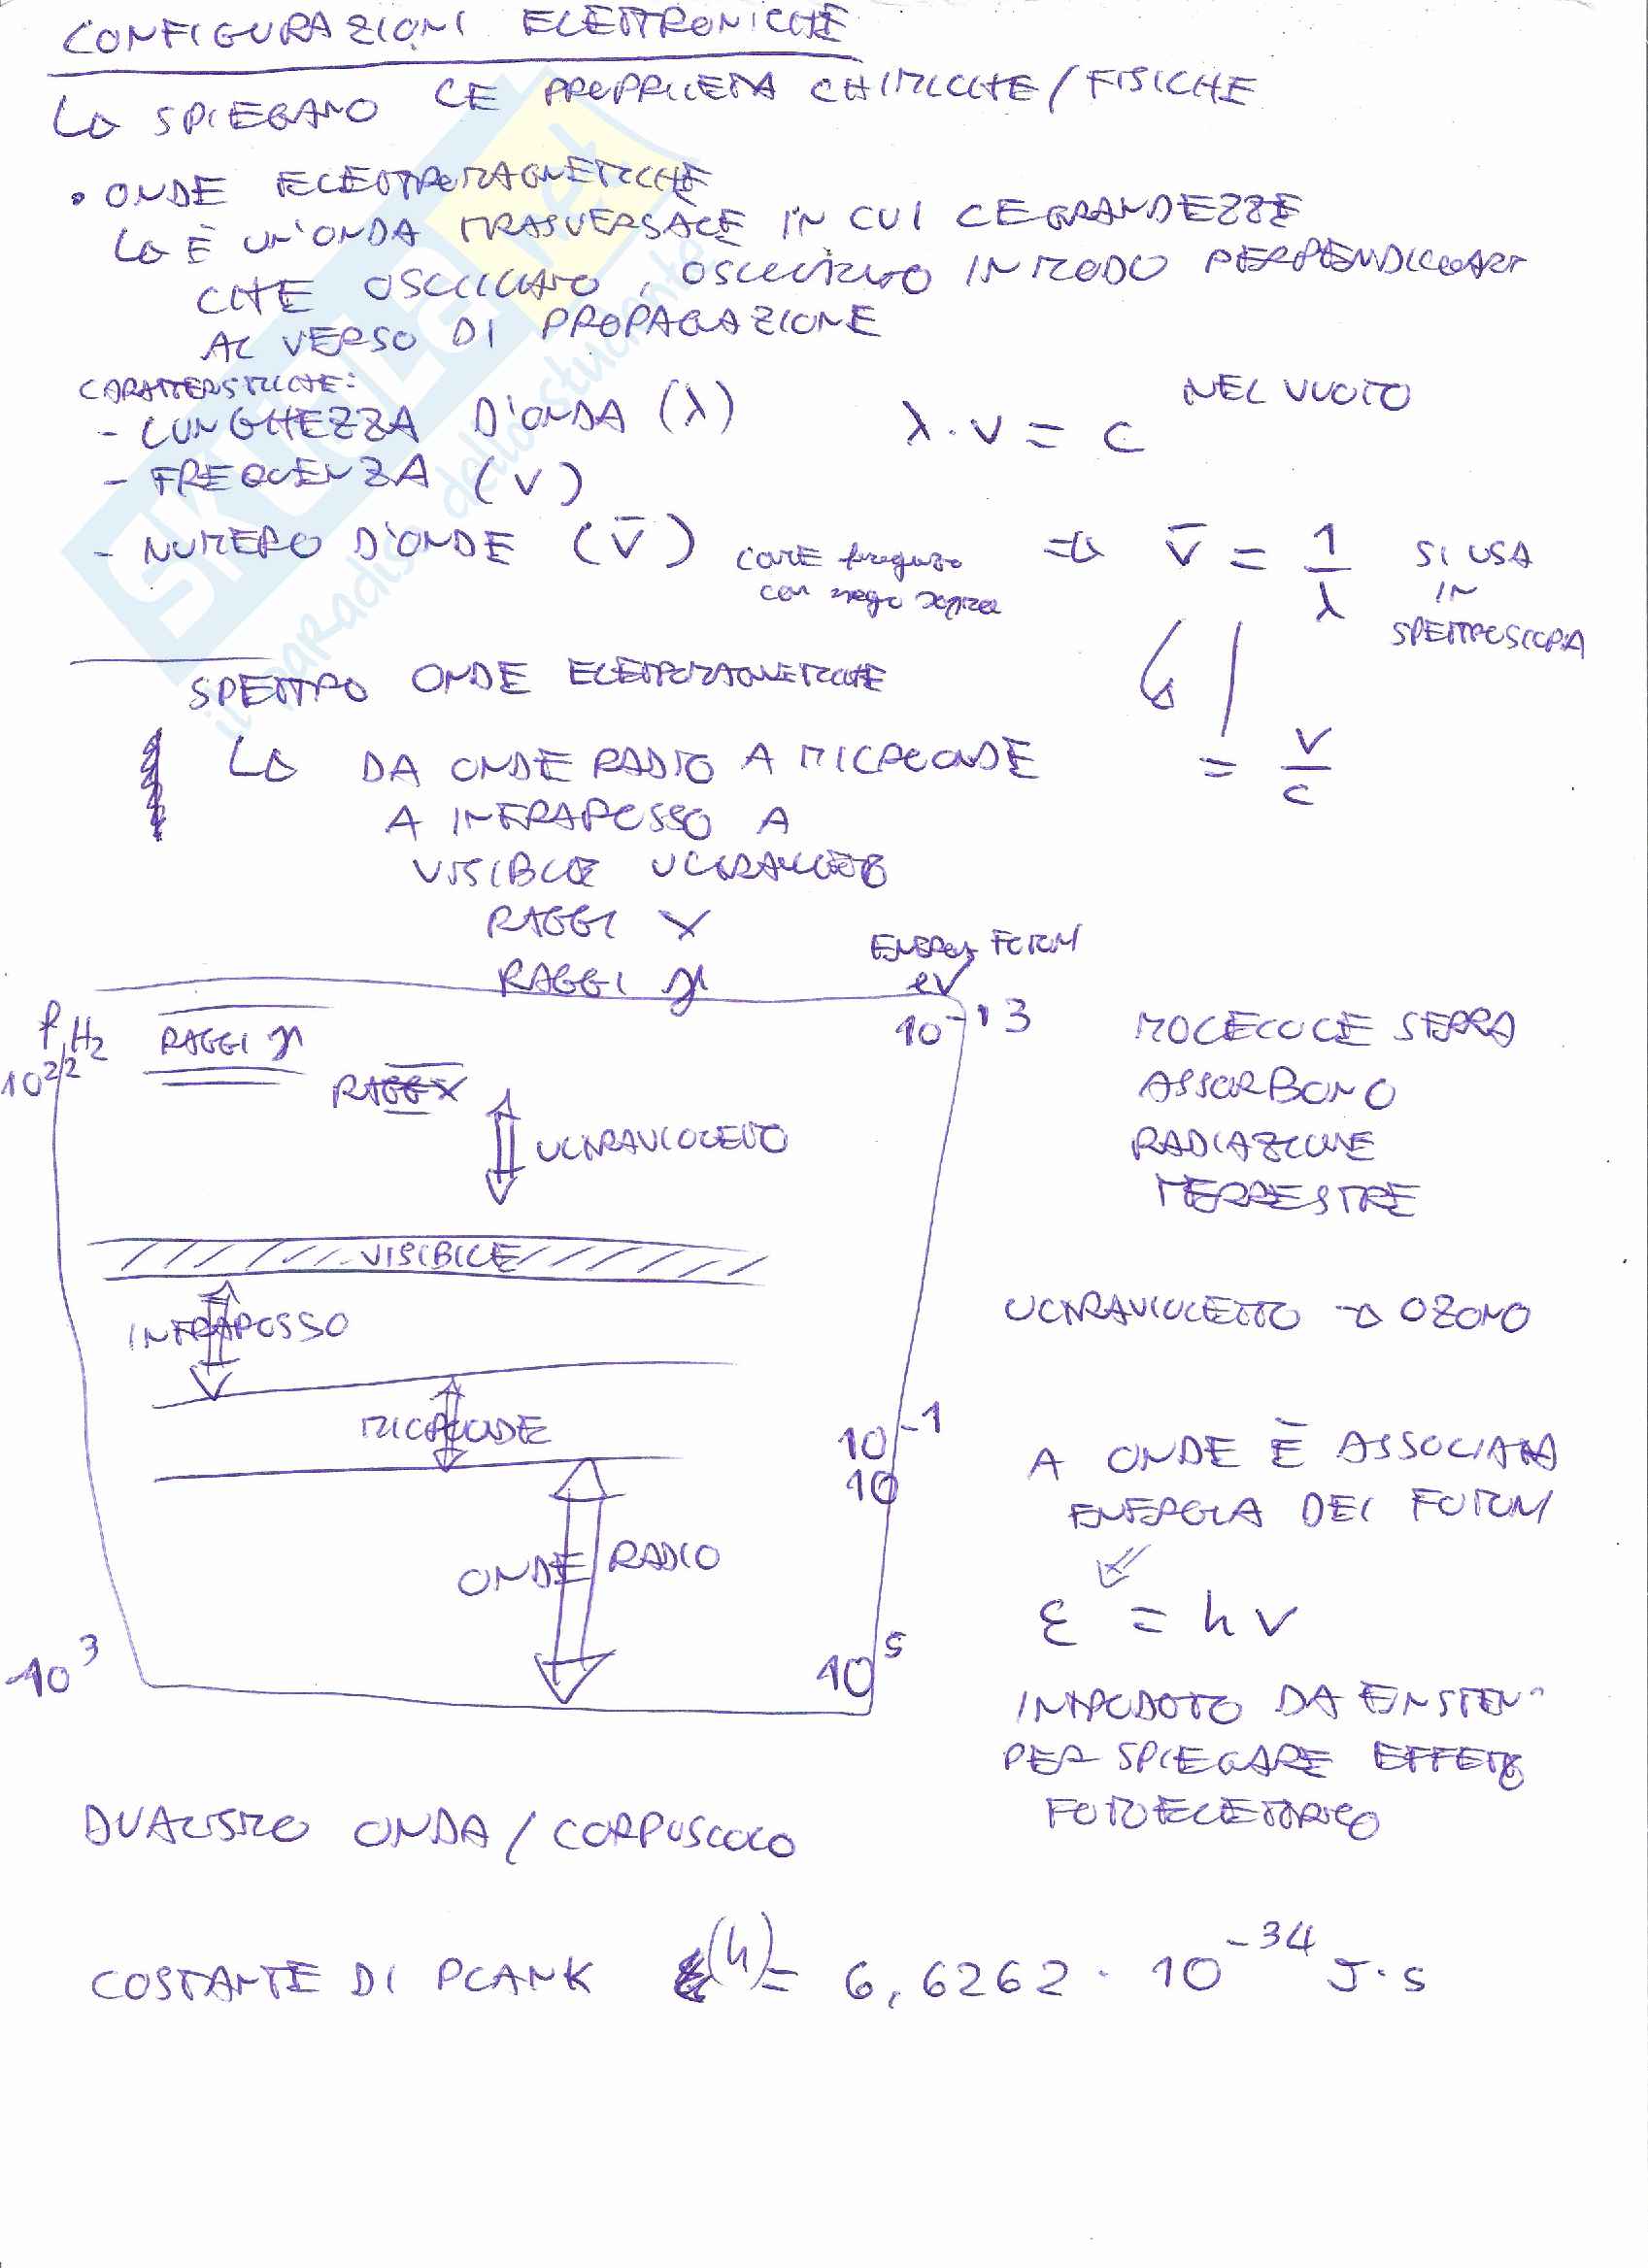 CONFIGURAZIONI ELETTRONICHE
SPIEGANO LE PROPRIETÀ CHIMICHE/FISICHE
• ONDE ELETTROMAGNETICHE
È UN'ONDA TRASVERSALE IN CUI LE GRANDEZZE
CHE OSCILLANO, OSCILLANO IN MODO PERPENDICOLARE
AL VERSO DI PROPAGAZIONE
CARATTERISTICHE:
- LUNGHEZZA D'ONDA (λ) λ·ν = c NEL VUOTO
- FREQUENZA (ν)
- NUMERO D'ONDE (ν̄) COME frequenza => ν̄ = 1/λ SI USA
con sopra IN
SPETTROSCOPIA
SPETTRO ONDE ELETTROMAGNETICHE
DA ONDE RADIO A MICROONDE = ν/c
A INFRAROSSO A
VISIBILE
RAGGI X
RAGGI γ
ENERGIA FOTONI
eV
f, Hz
10²²
RAGGI γ
10⁻¹³
RAGGI X
ULTRAVIOLETTO
VISIBILE
INFRAROSSO
MICROONDE
10⁻¹
10
ONDE RADIO
10³
10⁵
MOLECOLE SERRA
ASSORBONO
RADIAZIONE
TERRESTRE
ULTRAVIOLETTO → OZONO
A ONDE È ASSOCIATA
ENERGIA DEI FOTONI
ε = hν
INTRODOTTO DA EINSTEIN
PER SPIEGARE EFFETTO
FOTOELETTRICO
DUALISMO ONDA / CORPUSCOLO
COSTANTE DI PLANK (h) = 6,6262 · 10⁻³⁴ J·s
SKUOLA.net
il paradiso dello studente